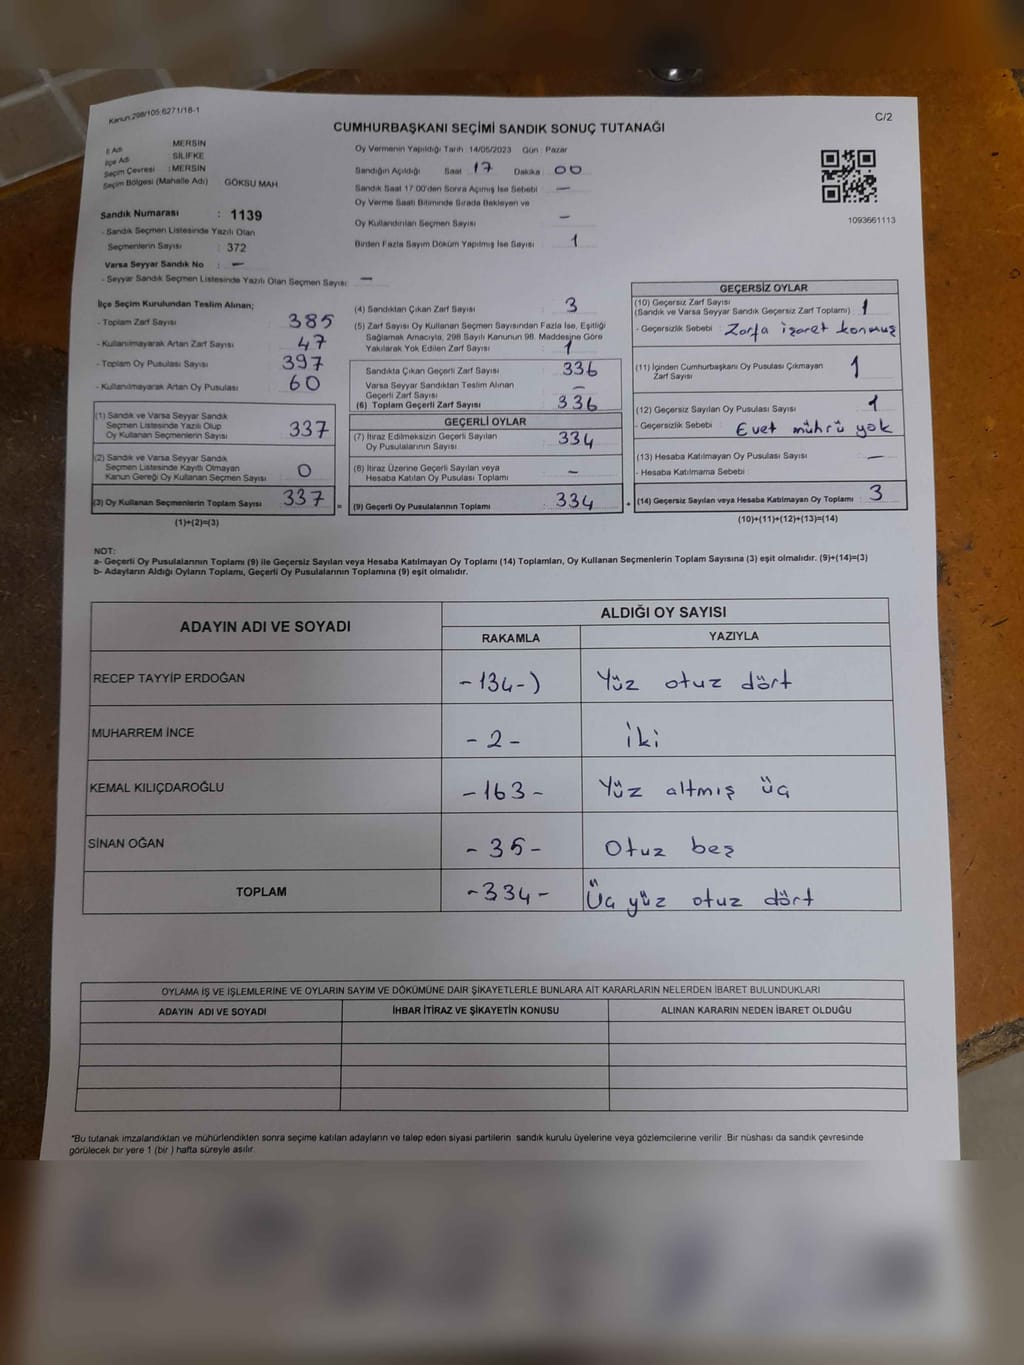 Kanun:298/105:6271/18-1
C/2
CUMHURBAŞKANI SEÇİMİ SANDIK SONUÇ TUTANAĞI
İl Adı MERSİN
İlçe Adı SİLİFKE
Seçim Çevresi :MERSİN
Seçim Bölgesi (Mahalle Adı) GÖKSU MAH
Sandık Numarası : 1139
- Sandık Seçmen Listesinde Yazılı Olan
Seçmenlerin Sayısı : 372
Varsa Seyyar Sandık No : –
- Seyyar Sandık Seçmen Listesinde Yazılı Olan Seçmen Sayısı : –
Oy Vermenin Yapıldığı Tarih : 14/05/2023 Gün : Pazar
Sandığın Açıldığı Saat 17 Dakika 00
Sandık Saat 17:00'den Sonra Açılmış İse Sebebi –
Oy Verme Saati Bitiminde Sırada Bekleyen ve
Oy Kullandırılan Seçmen Sayısı –
Birden Fazla Sayım Döküm Yapılmış İse Sayısı 1
1093661113
İlçe Seçim Kurulundan Teslim Alınan;
- Toplam Zarf Sayısı 385
- Kullanılmayarak Artan Zarf Sayısı 47
- Toplam Oy Pusulası Sayısı 397
- Kullanılmayarak Artan Oy Pusulası 60
(1) Sandık ve Varsa Seyyar Sandık
Seçmen Listesinde Yazılı Olup
Oy Kullanan Seçmenlerin Sayısı 337
(2) Sandık ve Varsa Seyyar Sandık
Seçmen Listesinde Kayıtlı Olmayan
Kanun Gereği Oy Kullanan Seçmen Sayısı 0
(3) Oy Kullanan Seçmenlerin Toplam Sayısı 337 =
(1)+(2)=(3)
(4) Sandıktan Çıkan Zarf Sayısı 3
(5) Zarf Sayısı Oy Kullanan Seçmen Sayısından Fazla İse, Eşitliği
Sağlamak Amacıyla, 298 Sayılı Kanunun 98. Maddesine Göre
Yakılarak Yok Edilen Zarf Sayısı 1
Sandıkta Çıkan Geçerli Zarf Sayısı 336
Varsa Seyyar Sandıktan Teslim Alınan
Geçerli Zarf Sayısı –
(6) Toplam Geçerli Zarf Sayısı 336
GEÇERLİ OYLAR
(7) İtiraz Edilmeksizin Geçerli Sayılan
Oy Pusulalarının Sayısı 334
(8) İtiraz Üzerine Geçerli Sayılan veya
Hesaba Katılan Oy Pusulası Toplamı –
(9) Geçerli Oy Pusulalarının Toplamı 334 +
GEÇERSİZ OYLAR
(10) Geçersiz Zarf Sayısı
(Sandık ve Varsa Seyyar Sandık Geçersiz Zarf Toplamı) 1
- Geçersizlik Sebebi : Zarfa işaret konmuş
(11) İçinden Cumhurbaşkanı Oy Pusulası Çıkmayan
Zarf Sayısı 1
(12) Geçersiz Sayılan Oy Pusulası Sayısı 1
- Geçersizlik Sebebi : Evet mührü yok
(13) Hesaba Katılmayan Oy Pusulası Sayısı –
- Hesaba Katılmama Sebebi :
(14) Geçersiz Sayılan veya Hesaba Katılmayan Oy Toplamı : 3
(10)+(11)+(12)+(13)=(14)
NOT:
a- Geçerli Oy Pusulalarının Toplamı (9) ile Geçersiz Sayılan veya Hesaba Katılmayan Oy Toplamı (14) Toplamları, Oy Kullanan Seçmenlerin Toplam Sayısına (3) eşit olmalıdır. (9)+(14)=(3)
b- Adayların Aldığı Oyların Toplamı, Geçerli Oy Pusulalarının Toplamına (9) eşit olmalıdır.
ADAYIN ADI VE SOYADI
ALDIĞI OY SAYISI
RAKAMLA YAZIYLA
RECEP TAYYİP ERDOĞAN -134-) Yüz otuz dört
MUHARREM İNCE -2- iki
KEMAL KILIÇDAROĞLU -163- Yüz altmış üç
SİNAN OĞAN -35- Otuz beş
TOPLAM -334- Üç yüz otuz dört
OYLAMA İŞ VE İŞLEMLERİNE VE OYLARIN SAYIM VE DÖKÜMÜNE DAİR ŞİKAYETLERLE BUNLARA AİT KARARLARIN NELERDEN İBARET BULUNDUKLARI
ADAYIN ADI VE SOYADI İHBAR İTİRAZ VE ŞİKAYETİN KONUSU ALINAN KARARIN NEDEN İBARET OLDUĞU
*Bu tutanak imzalandıktan ve mühürlendikten sonra seçime katılan adayların ve talep eden siyasi partilerin sandık kurulu üyelerine veya gözlemcilerine verilir. Bir nüshası da sandık çevresinde
görülecek bir yere 1 (bir ) hafta süreyle asılır.